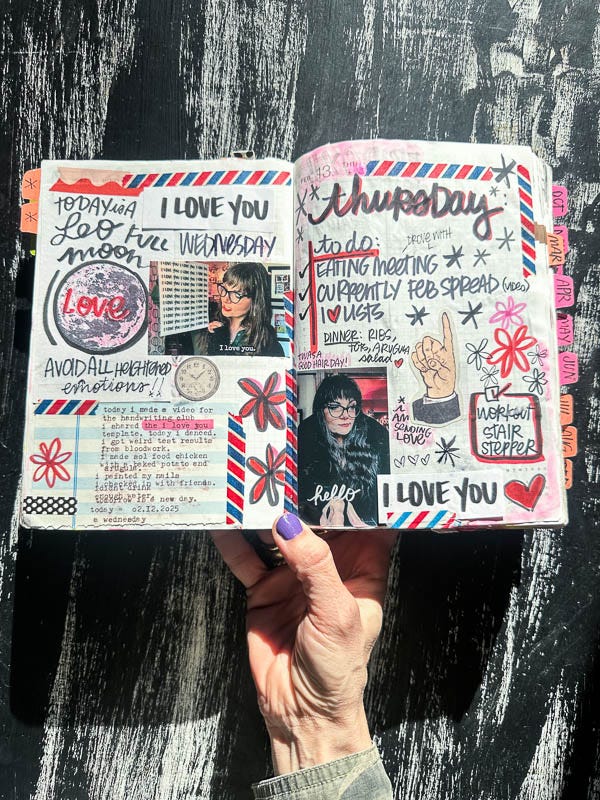 TODAY is A
Leo Full
moon
I LOVE YOU
WEDNESDAY
Love
I love you.
AVOID ALL HEIGHTENED
emotions!!
today i made a video for
the handwriting club
i shared the i love you
template. today i danced.
i got weird test results
from bloodwork.
i made sol food chicken
with a baked potato and
i painted my nails
with friends.
is a new day.
today = 02.12.2025
a wednesday
13
thursday
to do:
EATING MEETING
CURRENTLY FEB SPREAD (VIDEO)
I ♥ LISTS
DINNER: RIBS,
TOTS, ARUGULA
salad
TWAS A
GOOD HAIR DAY!
i AM
SENDING
LOVE
WORKOUT
STAIR
STEPPER
hello
I LOVE YOU
OCT
MAR
APR
MAY
JUN
AUG